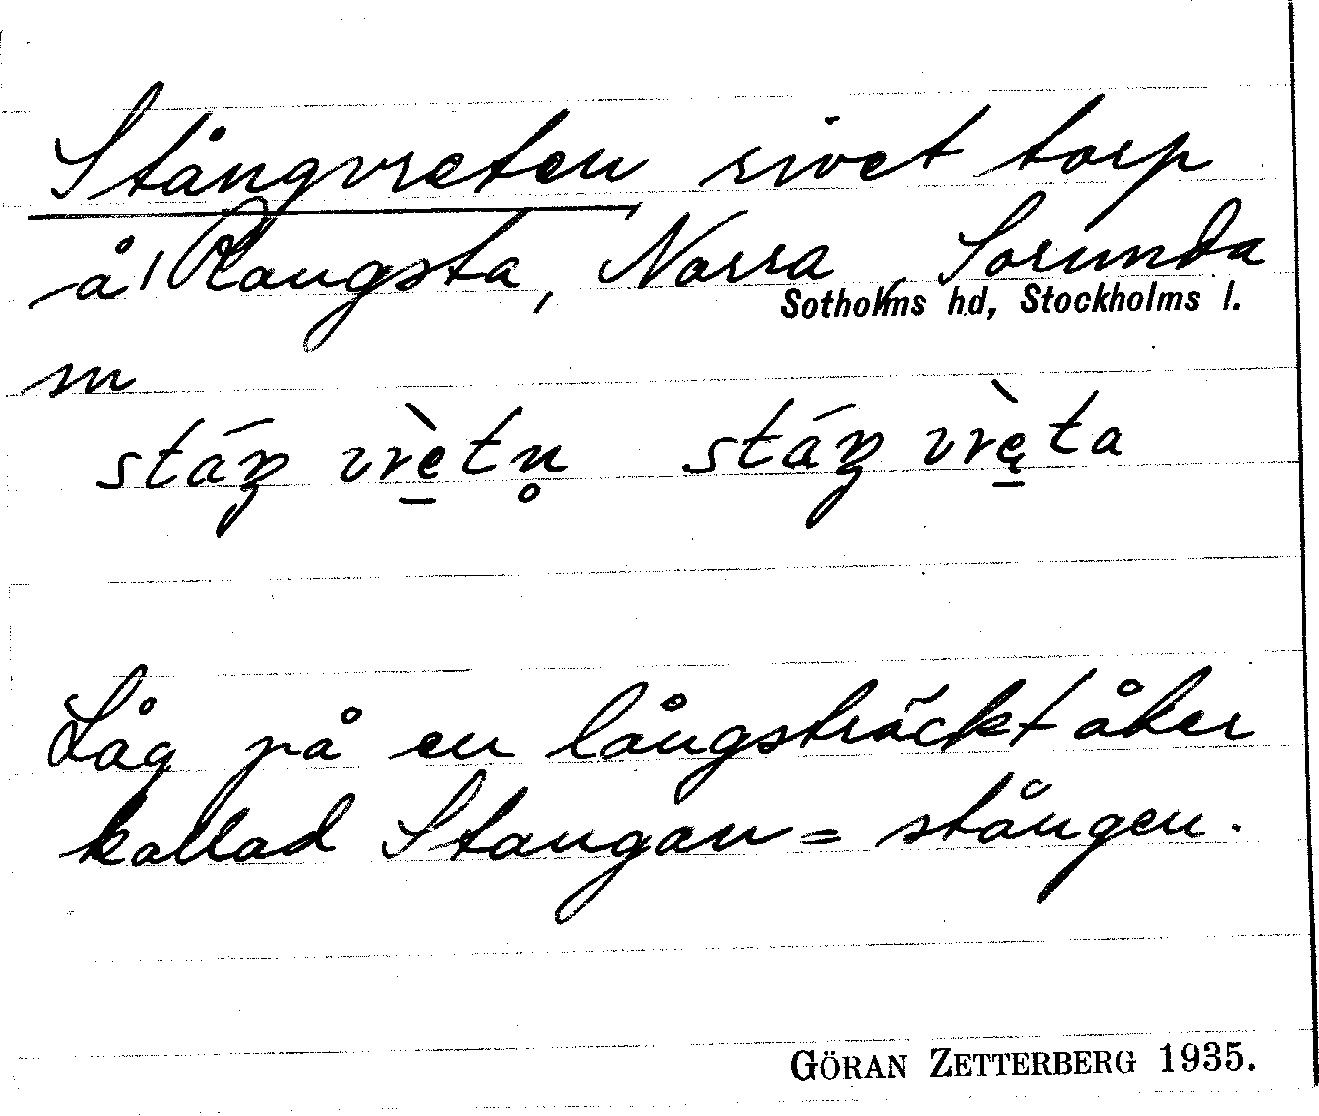 Stångvreten rivet torp
å Rangsta, Norra, Sorunda
Sotholms hd, Stockholms l.
m
stáŋ vrètn̥ stáŋ vrèta
Låg på en långsträckt åker
kallad Stangan = stången.
GÖRAN ZETTERBERG 1935.